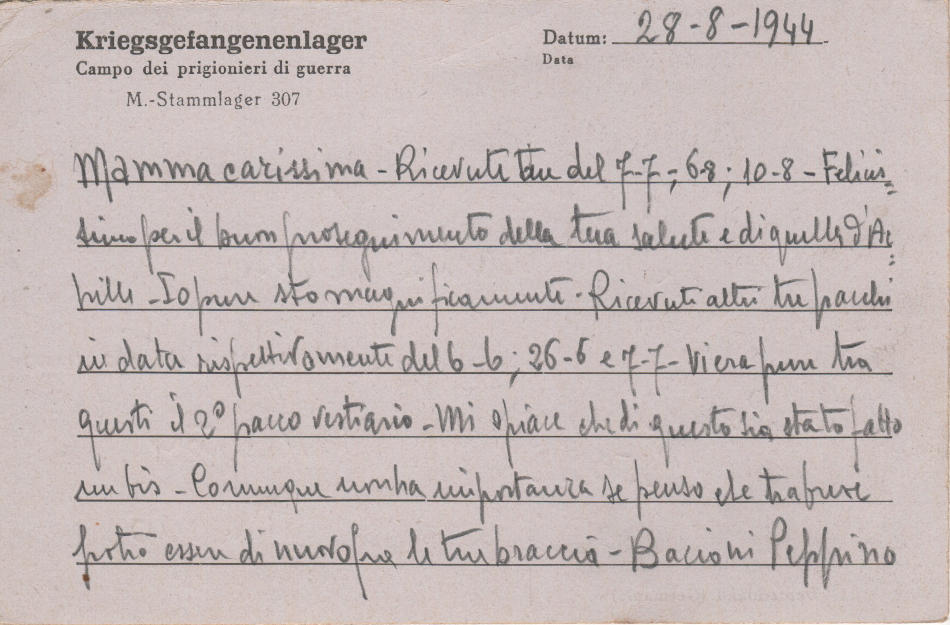 Kriegsgefangenenlager
Campo dei prigionieri di guerra
M.-Stammlager 307
Datum: 28-8-1944
Data
Mamma carissima - Ricevute tue del 7-7-; 6-8; 10-8 - Felicis=
simo per il buon proseguimento della tua salute e di quella d'A=
chille - Io pure sto magnificamente - Ricevuti altri tre pacchi
in data rispettivamente del 6-6; 26-6 e 7-7- Vi era pure tra
questi il 2º pacco vestiario - Mi spiace che di questo sia stato fatto
un bis - Comunque non ha importanza se penso che tra breve
potrò essere di nuovo fra le tue braccia - Bacioni Peppino